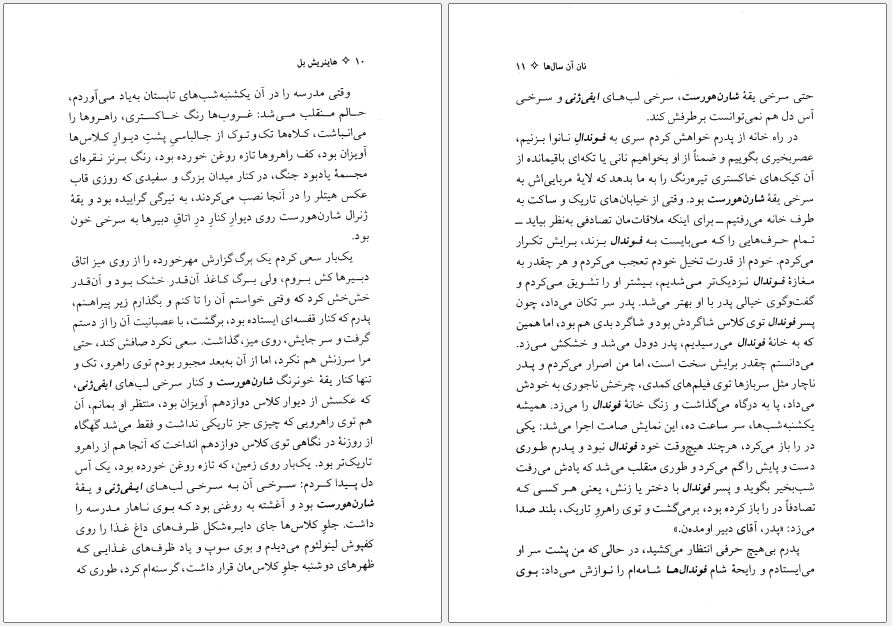 ۱۰ ✧ هاینریش بل
وقتی مدرسه را در آن یکشنبه‌شب‌های تابستان به‌یاد می‌آوردم،
حالم منقلب می‌شد: غروب‌ها رنگ خاکستری، راهروها را
می‌انباشت، کلاه‌ها تک‌وتوک از جالباسیِ پشتِ دیوارِ کلاس‌ها
آویزان بود، کف راهروها تازه روغن خورده بود، رنگ برنز نقره‌ای
مجسمهٔ یادبود جنگ، در کنار میدان بزرگ و سفیدی که روزی قاب
عکس هیتلر را در آنجا نصب می‌کردند، به تیرگی گراییده بود و یقهٔ
ژنرال شارن‌هورست روی دیوارِ کنارِ درِ اتاقِ دبیرها به سرخی خون
بود.
یک‌بار سعی کردم یک برگ گزارش مهرخورده را از روی میز اتاق
دبیرها کش بروم، ولی برگ کاغذ آن‌قدر خشک بود و آن‌قدر
خش‌خش کرد که وقتی خواستم آن را تا کنم و بگذارم زیر پیراهنم،
پدرم که کنار قفسه‌ای ایستاده بود، برگشت، با عصبانیت آن را از دستم
گرفت و سر جایش، روی میز، گذاشت. سعی نکرد صافش کند، حتی
مرا سرزنش هم نکرد، اما از آن به‌بعد مجبور بودم توی راهرو، تک و
تنها کنار یقهٔ خونرنگ شارن‌هورست و کنار سرخی لب‌های ایفی‌ژنی،
که عکسش از دیوار کلاس دوازدهم آویزان بود، منتظر او بمانم، آن
هم توی راهرویی که چیزی جز تاریکی نداشت و فقط می‌شد گهگاه
از روزنهٔ در نگاهی توی کلاس دوازدهم انداخت که آنجا هم از راهرو
تاریک‌تر بود. یک‌بار روی زمین، که تازه روغن خورده بود، یک آس
دل پیدا کردم: سرخی آن به سرخی لب‌های ایفی‌ژنی و یقهٔ
شارن‌هورست بود و آغشته به روغنی بود که بوی ناهار مدرسه را
داشت. جلو کلاس‌ها جای دایره‌شکل ظرف‌های داغ غذا را روی
کفپوش لینولئوم می‌دیدم و بوی سوپ و یاد ظرف‌های غذایی که
ظهرهای دوشنبه جلوِ کلاس‌مان قرار داشت، گرسنه‌ام کرد، طوری که
نان آن سال‌ها ✧ ۱۱
حتی سرخی یقهٔ شارن‌هورست، سرخی لب‌های ایفی‌ژنی و سرخی
آس دل هم نمی‌توانست برطرفش کند.
در راه خانه از پدرم خواهش کردم سری به فوندالِ نانوا بزنیم،
عصربخیری بگوییم و ضمناً از او بخواهیم نانی یا تکه‌ای باقیمانده از
آن کیک‌های خاکستری تیره‌رنگ را به ما بدهد که لایهٔ مربایی‌اش به
سرخی یقهٔ شارن‌هورست بود. وقتی از خیابان‌های تاریک و ساکت به
طرف خانه می‌رفتیم ــ برای اینکه ملاقات‌مان تصادفی به‌نظر بیاید ــ
تمام حرف‌هایی را که می‌بایست به فوندال بزند، برایش تکرار
می‌کردم. خودم از قدرت تخیل خودم تعجب می‌کردم و هر چقدر به
مغازهٔ فوندال نزدیک‌تر می‌شدیم، بیشتر او را تشویق می‌کردم و
گفت‌وگوی خیالی پدر با او بهتر می‌شد. پدر سر تکان می‌داد، چون
پسر فوندال توی کلاس شاگردش بود و شاگرد بدی هم بود، اما همین
که به خانهٔ فوندال می‌رسیدیم، پدر دودل می‌شد و خشکش می‌زد.
می‌دانستم چقدر برایش سخت است، اما من اصرار می‌کردم و پدر
ناچار مثل سربازها توی فیلم‌های کمدی، چرخش ناجوری به خودش
می‌داد، پا به درگاه می‌گذاشت و زنگ خانهٔ فوندال را می‌زد. همیشه
یکشنبه‌شب‌ها، سر ساعت ده، این نمایش صامت اجرا می‌شد: یکی
در را باز می‌کرد، هرچند هیچ‌وقت خود فوندال نبود و پدرم طوری
دست و پایش را گم می‌کرد و طوری منقلب می‌شد که یادش می‌رفت
شب‌بخیر بگوید و پسر فوندال با دختر یا زنش، یعنی هر کسی که
تصادفاً در را باز کرده بود، برمی‌گشت و توی راهروِ تاریک، بلند صدا
می‌زد: «پدر، آقای دبیر اومده‌ن.»
پدرم بی‌هیچ حرفی انتظار می‌کشید، در حالی که من پشت سر او
می‌ایستادم و رایحهٔ شام فوندال‌ها شامه‌ام را نوازش می‌داد: بوی